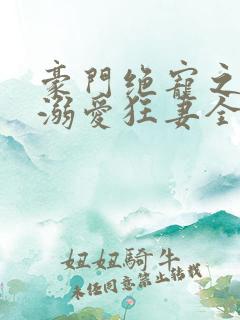 豪門绝寵之
溺愛狂妻全
妞妞騎牛
未经同意禁止转载